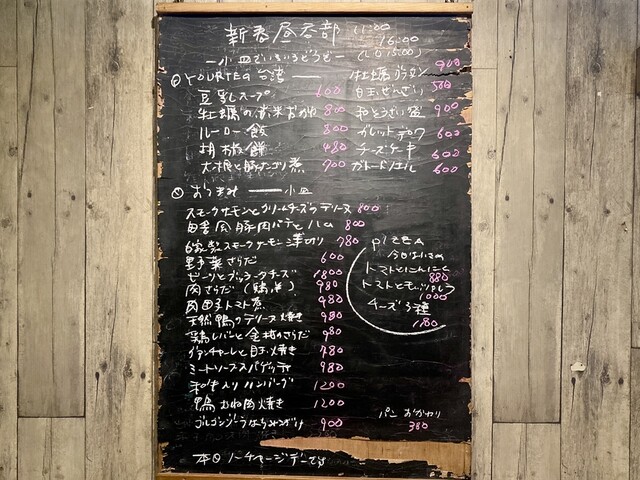 新春昼呑部 11:00
16:00
ー小皿でいろいろどうぞー (L.O 15:00)
YOURTEA 台湾
豆乳スープ 600
牡蠣のお米おかゆ 800
ルーロー飯 800
胡椒餅 480
大根と豚 煮 700
牡蠣グラタン 900
白玉ぜんざい 500
900
ガレットデロワ 600
チーズケーキ 600
ガトーノエル 600
おつまみ ー 小皿
スモークサーモンとクリームチーズのテリーヌ 800
自家製豚肉パテとハム 800
自家製スモークサーモン薄切り 780
野菜さらだ 600
ビーツとブッラータチーズ 1800
肉さらだ (鶏 ) 980
肉団子トマト煮 980
天然鴨のテリーヌ焼き 980
鶏レバーと金柑のさらだ 980
グアンチャーレと目玉焼き 780
ミートソーススパゲッティ 980
入りハンバーグ 1200
鴨むね肉焼き 1200
ゴルゴンゾーラはちみつがけ 900
pizza
今日は小さめ
トマトとにんにく
880
トマトともっつぁれら
1000
チーズ3種
1180
パン おかわり
380
本日ノーチャージデーです